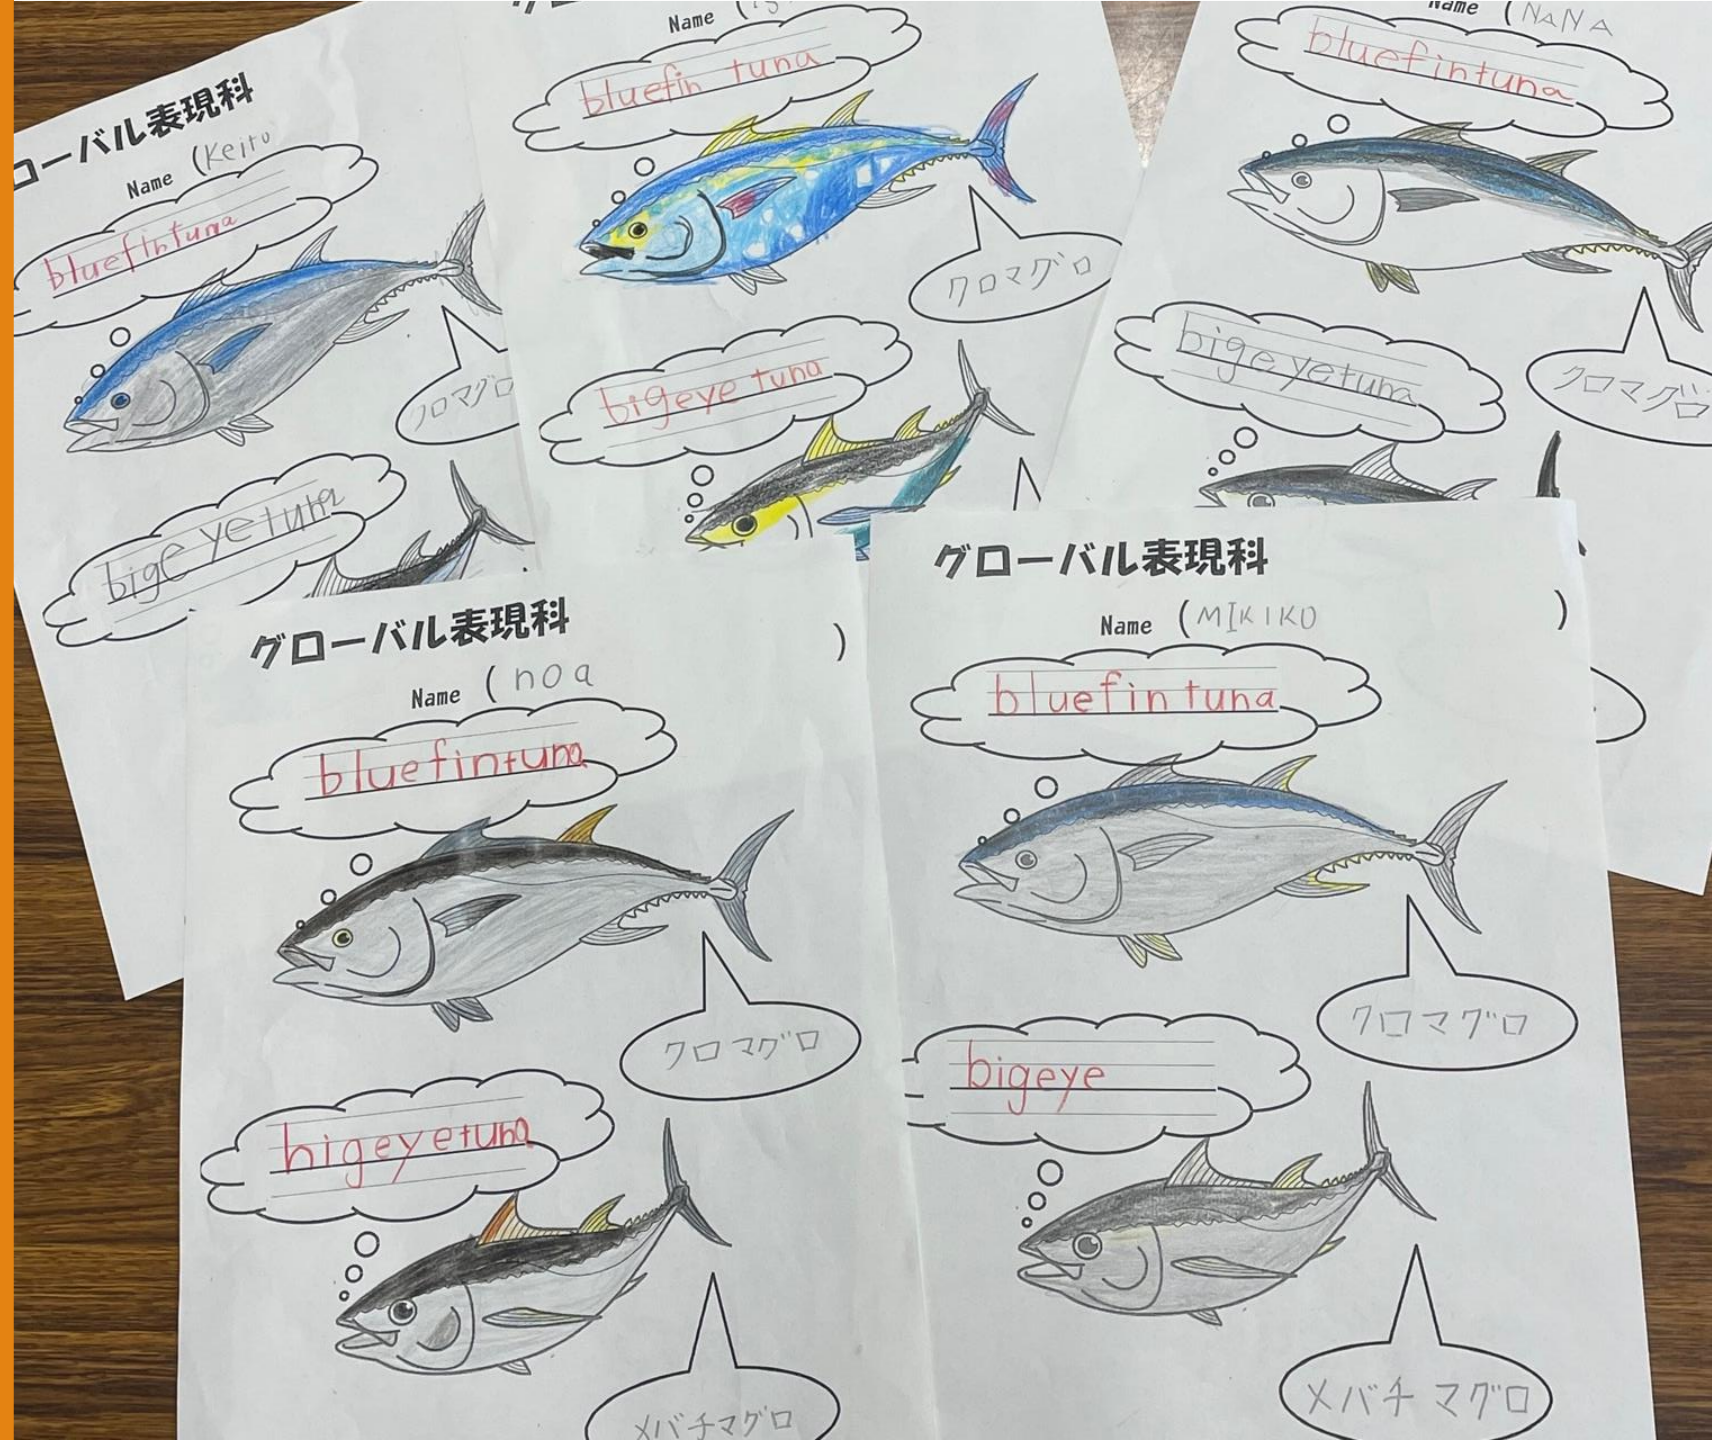 ローバル表現科
Name (Keito
bluefintuna
クロマグロ
bigeyetuna
Name (
bluefin tuna
クロマグロ
bigeye tuna
Name (NANA
bluefintuna
クロマグロ
bigeyetuna
グローバル表現科
Name (noa )
bluefintuna
クロマグロ
higeyetuna
メバチマグロ
グローバル表現科
Name (MIKIKO )
bluefin tuna
クロマグロ
bigeye
メバチマグロ